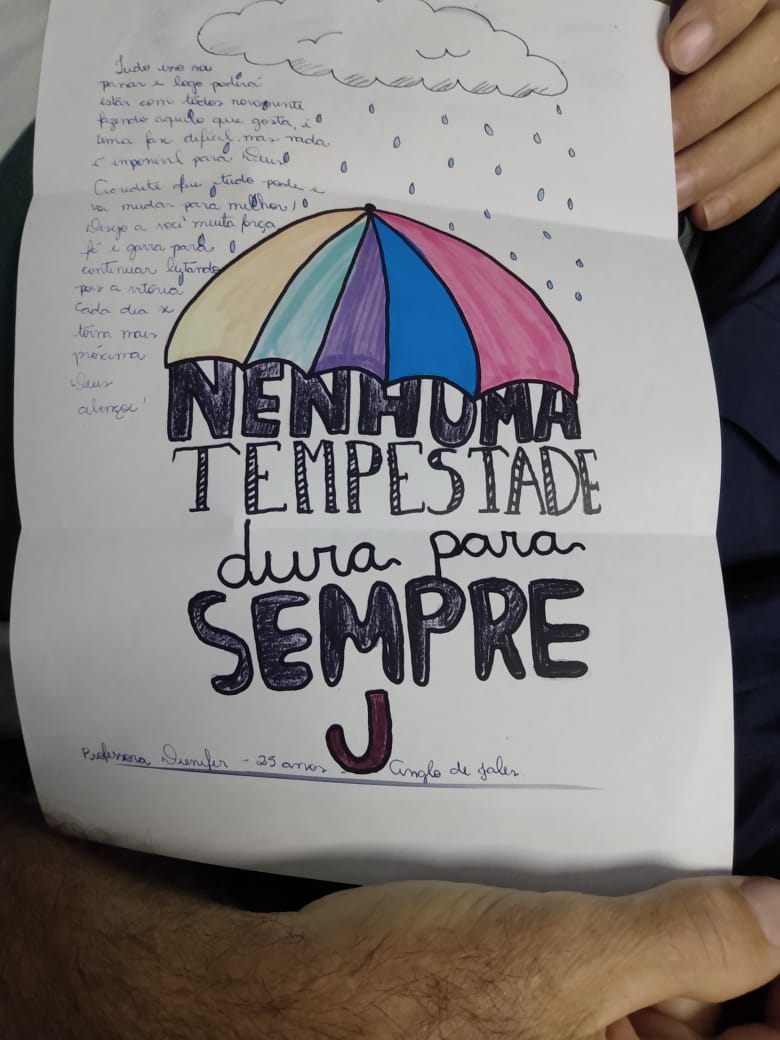 Tudo isso vai
passar e logo poderá
estar com todos novamente
fazendo aquilo que gosta, é
uma fase difícil, mas nada
é impossível para Deus
Acredite que tudo pode e
vai mudar para melhor!
Desejo a você muita força
fé e garra para
continuar lutando
pois a vitória
cada dia se
torna mais
próxima
Deus
abençoe!
NENHUMA
TEMPESTADE
dura para
SEMPRE
Professora Dienifer - 25 anos - Anglo de Jales